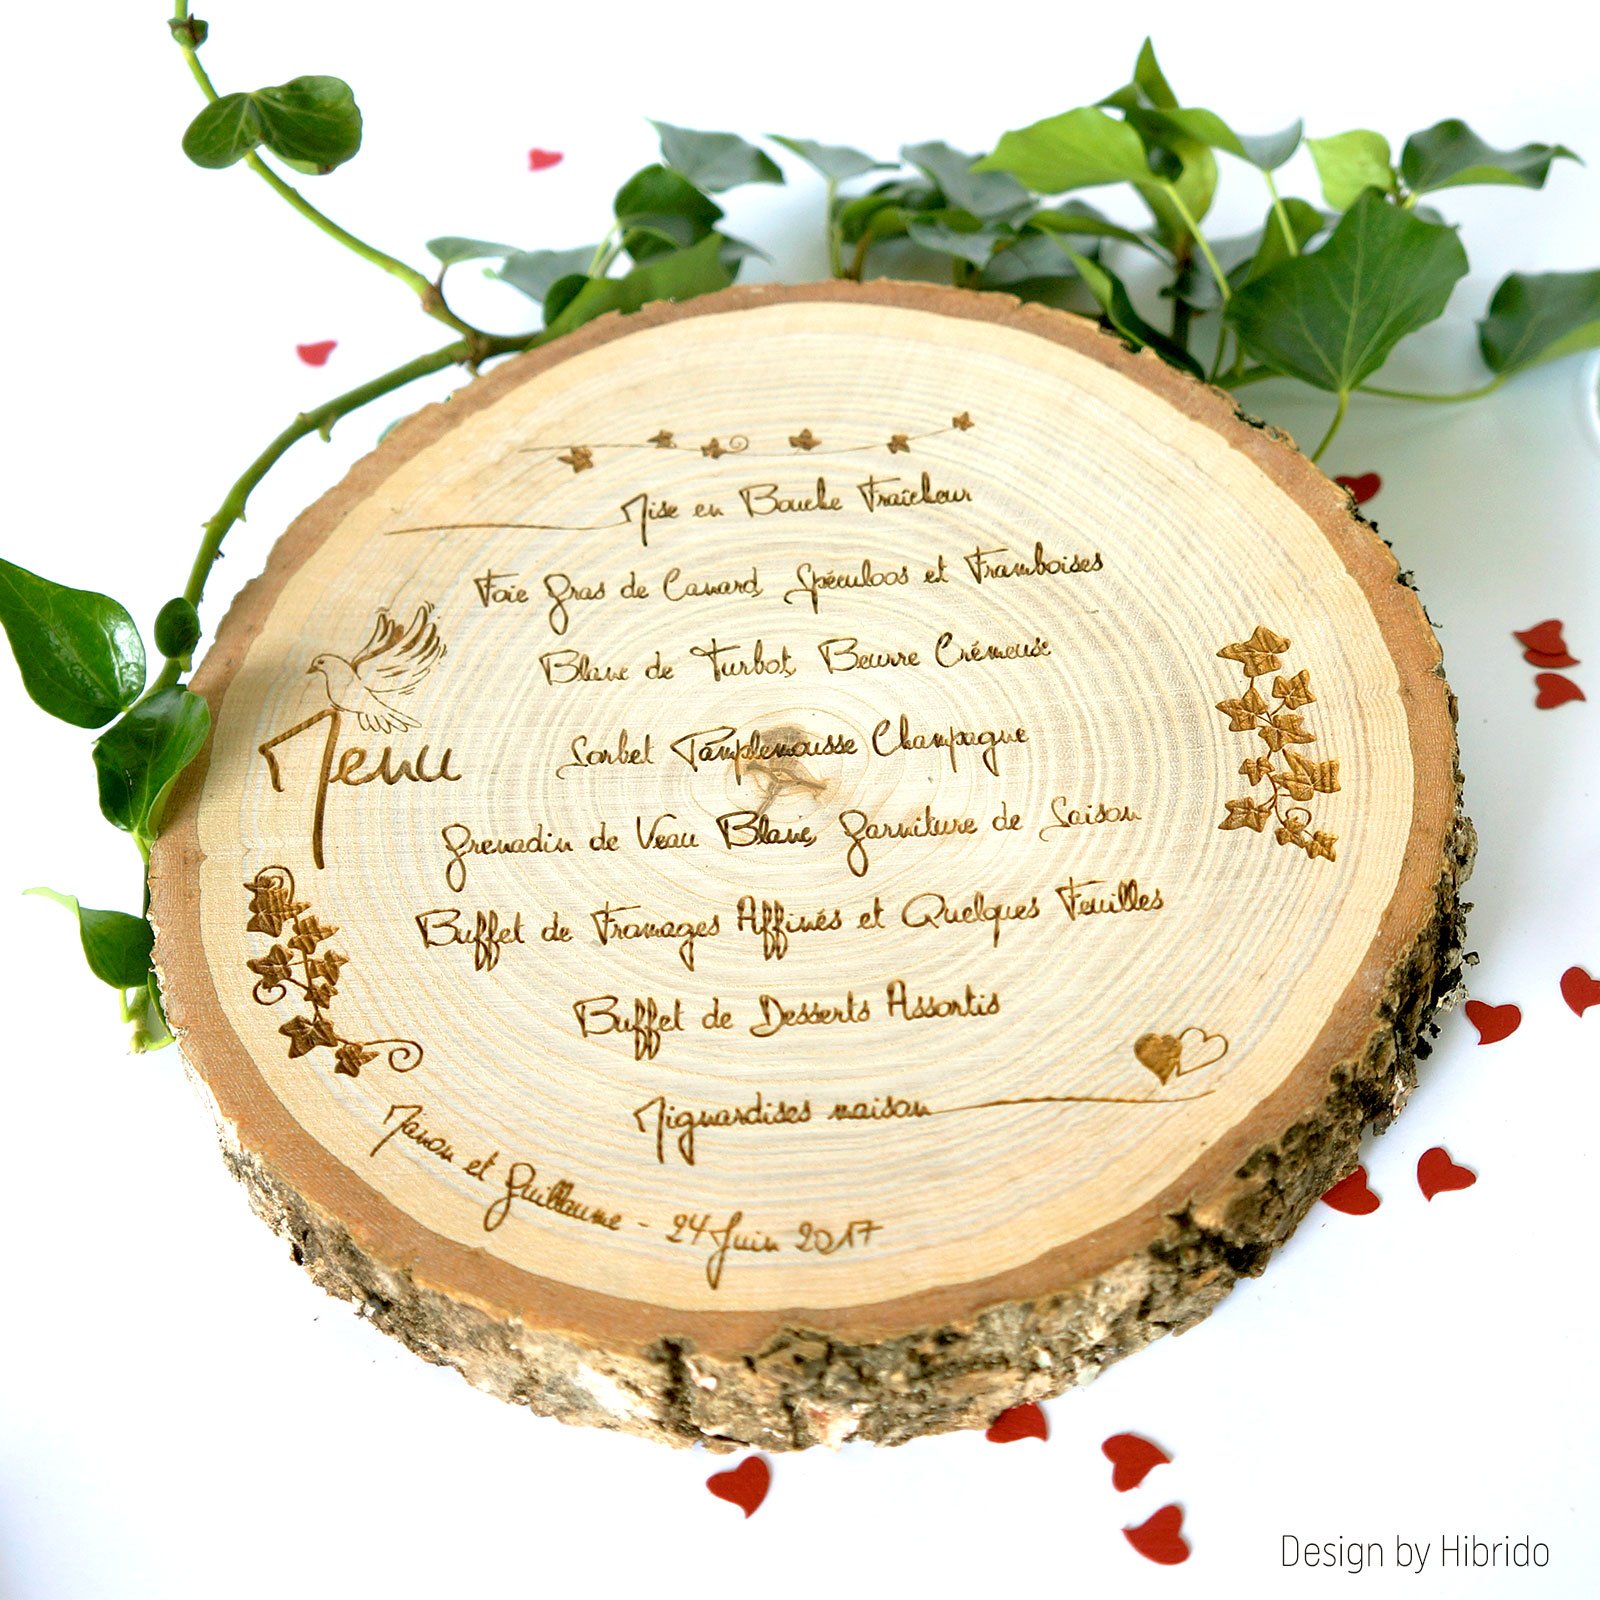 Menu
Mise en Bouche Fraîcheur
Foie Gras de Canard, Spéculoos et Framboises
Blanc de Turbot, Beurre Crémeuse
Sorbet Pamplemousse Champagne
Grenadin de Veau Blanc, Garniture de Saison
Buffet de Fromages Affinés et Quelques Feuilles
Buffet de Desserts Assortis
Mignardises maison
Manon et Guillaume - 24 Juin 2017
Design by Hibrido